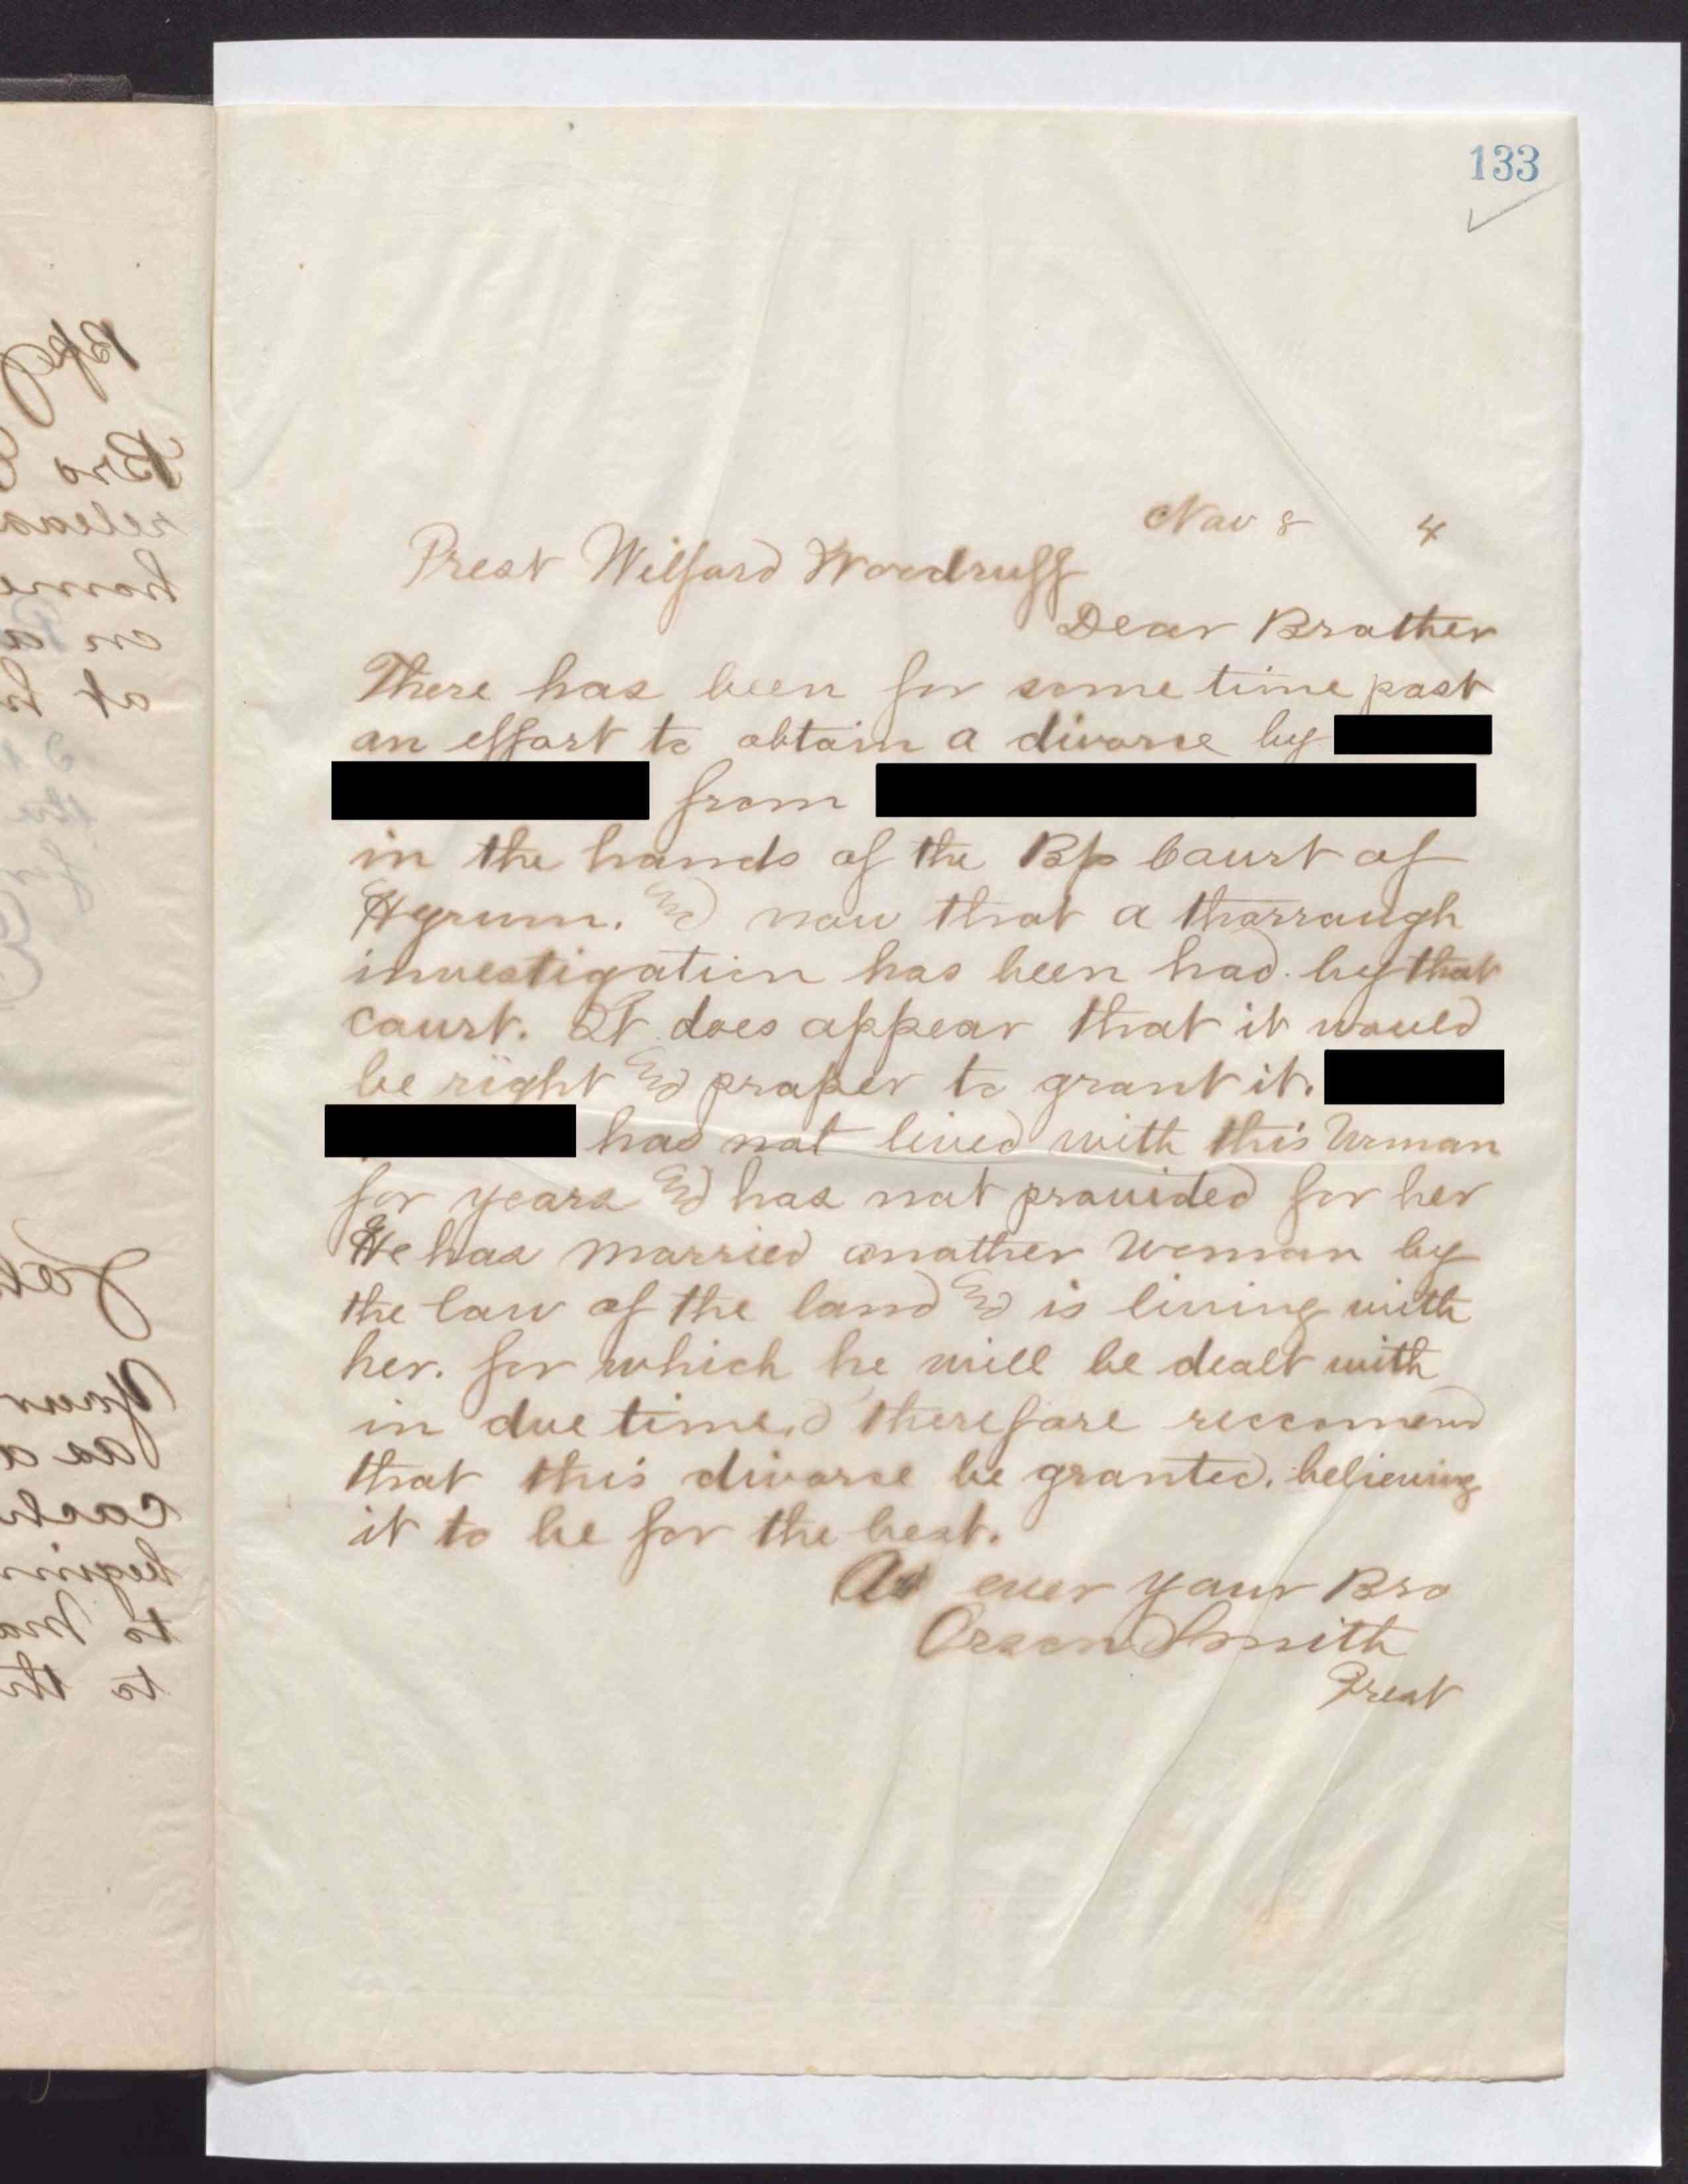 133
Nov 8 4
Prest Wilford Woodruff
Dear Brother
There has been for some time past
an effort to obtain a divorse by
from
in the hands of the Bp Court of
Hyrum. and now that a thorrough
investigation has been had by that
court. It does appear that it would
be right and proper to grant it.
has not lived with this Woman
for years and has not provided for her
He has married another Woman by
the law of the land and is living with
her. for which he will be dealt with
in due time. I therefore reccomend
that this divorse be granted. believing
it to be for the best.
As ever your Bro
Orson Smith
Prest
Bro
releas
home
on
at
Your
as a
cach
begin
to
to th